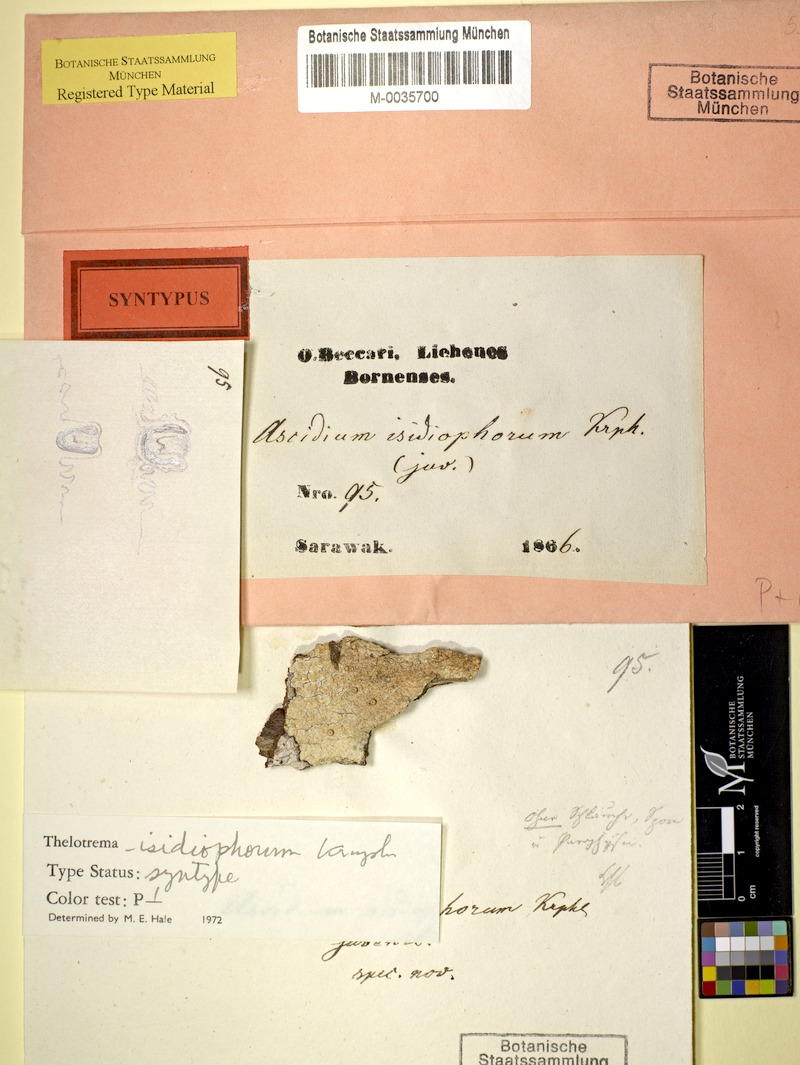 BOTANISCHE STAATSSAMMLUNG
MÜNCHEN
Registered Type Material
Botanische Staatssammlung München
M-0035700
Botanische
Staatssammlung
München
SYNTYPUS
O. Beccari. Lichenes
Bornenses.
Ascidium isidiophorum Krph.
(juv.)
Nro. 95.
Sarawak. 1866.
95
P+
95.
ohne Schläuche, Spor
u
Thelotrema isidiophorum Kremplh
Type Status: syntype
Color test: P
Determined by M. E. Hale 1972
horum Krphl
spec. nov.
BOTANISCHE
STAATSSAMMLUNG
MÜNCHEN
copyright reserved
0 1 2
cm
Botanische
Staatssammlung